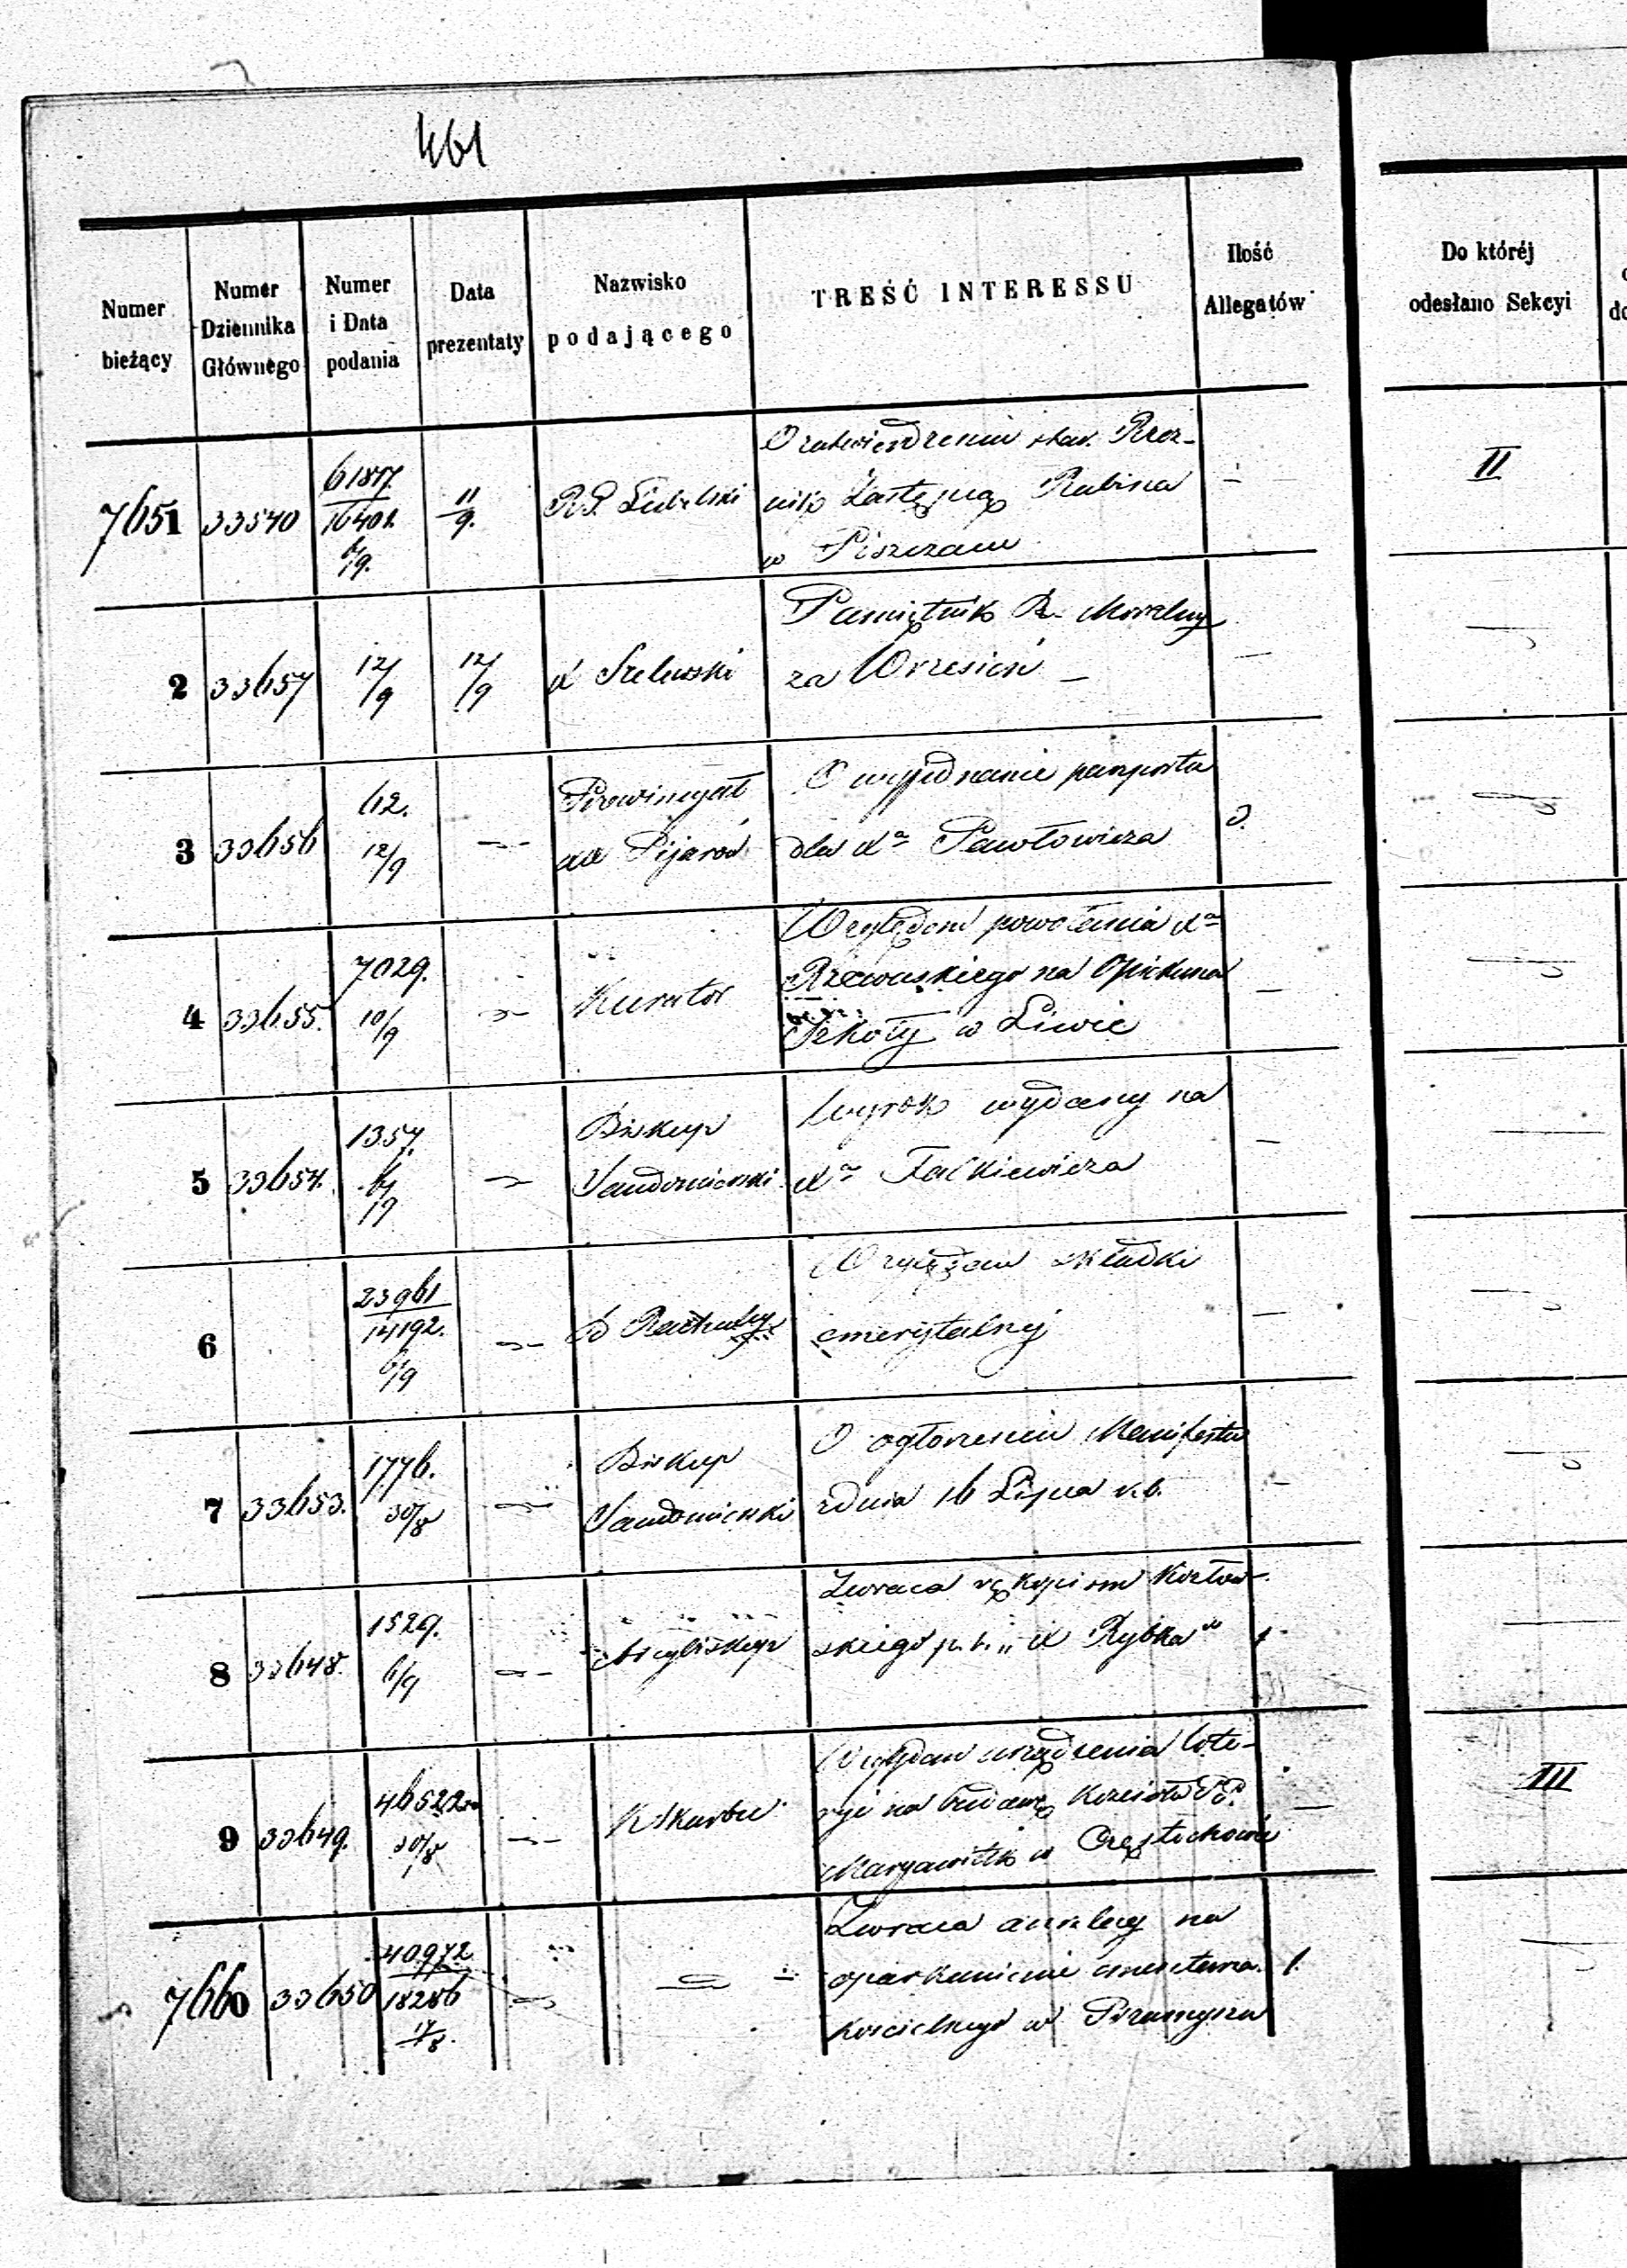 461
Numer bieżący
Numer Dziennika Głównego
Numer i Data podania
Data prezentaty
Nazwisko podającego
TREŚĆ INTERESSU
Ilość Allegatów
Do któréj odesłano Sekcyi
7651 33540 61817. 11 R.G. Lubelski O zatwierdzeniu
16401. 9. Zastępcą Rabina
6/9. w Piszczacu
— II
2 33657 12/9 12/9 X Szelewski Pamiętnik R. Moralny
za Wrzesień —
3 33656 62. Prowincyał O wyjednanie paszportu
12/9 XX Pijarów dla Xa Pawłowicza
4 33655. 7029. Kurator Względem powołania Xa
10/9 Rzewuskiego na Opiekuna
Szkoły w Liwie —
5 33654. 1357. Biskup Wyrok wydany na
6/9 Sandomierski Xa Fałkiewicza —
6 23961 Względem składki
14192. emerytalnej —
6/9
7 33653. 1776. Biskup O ogłoszeniu Manifestu
30/8 Sandomierski z dnia 16 Lipca r.b. —
8 33648. 1529. Arcybiskup Zwraca rękopism Kozłow-
6/9 skiego p.t. „X Rybka” 1
9 33649. 46522 K Skarbu Względem urządzenia lote-
30/8 ryi na budowę Kościoła PP.
Maryawitek w Częstochowie — III
7660 33650 40972 Zwraca anszlag na
18286 oparkanienie cmentarza 1.
17/8. kościelnego w